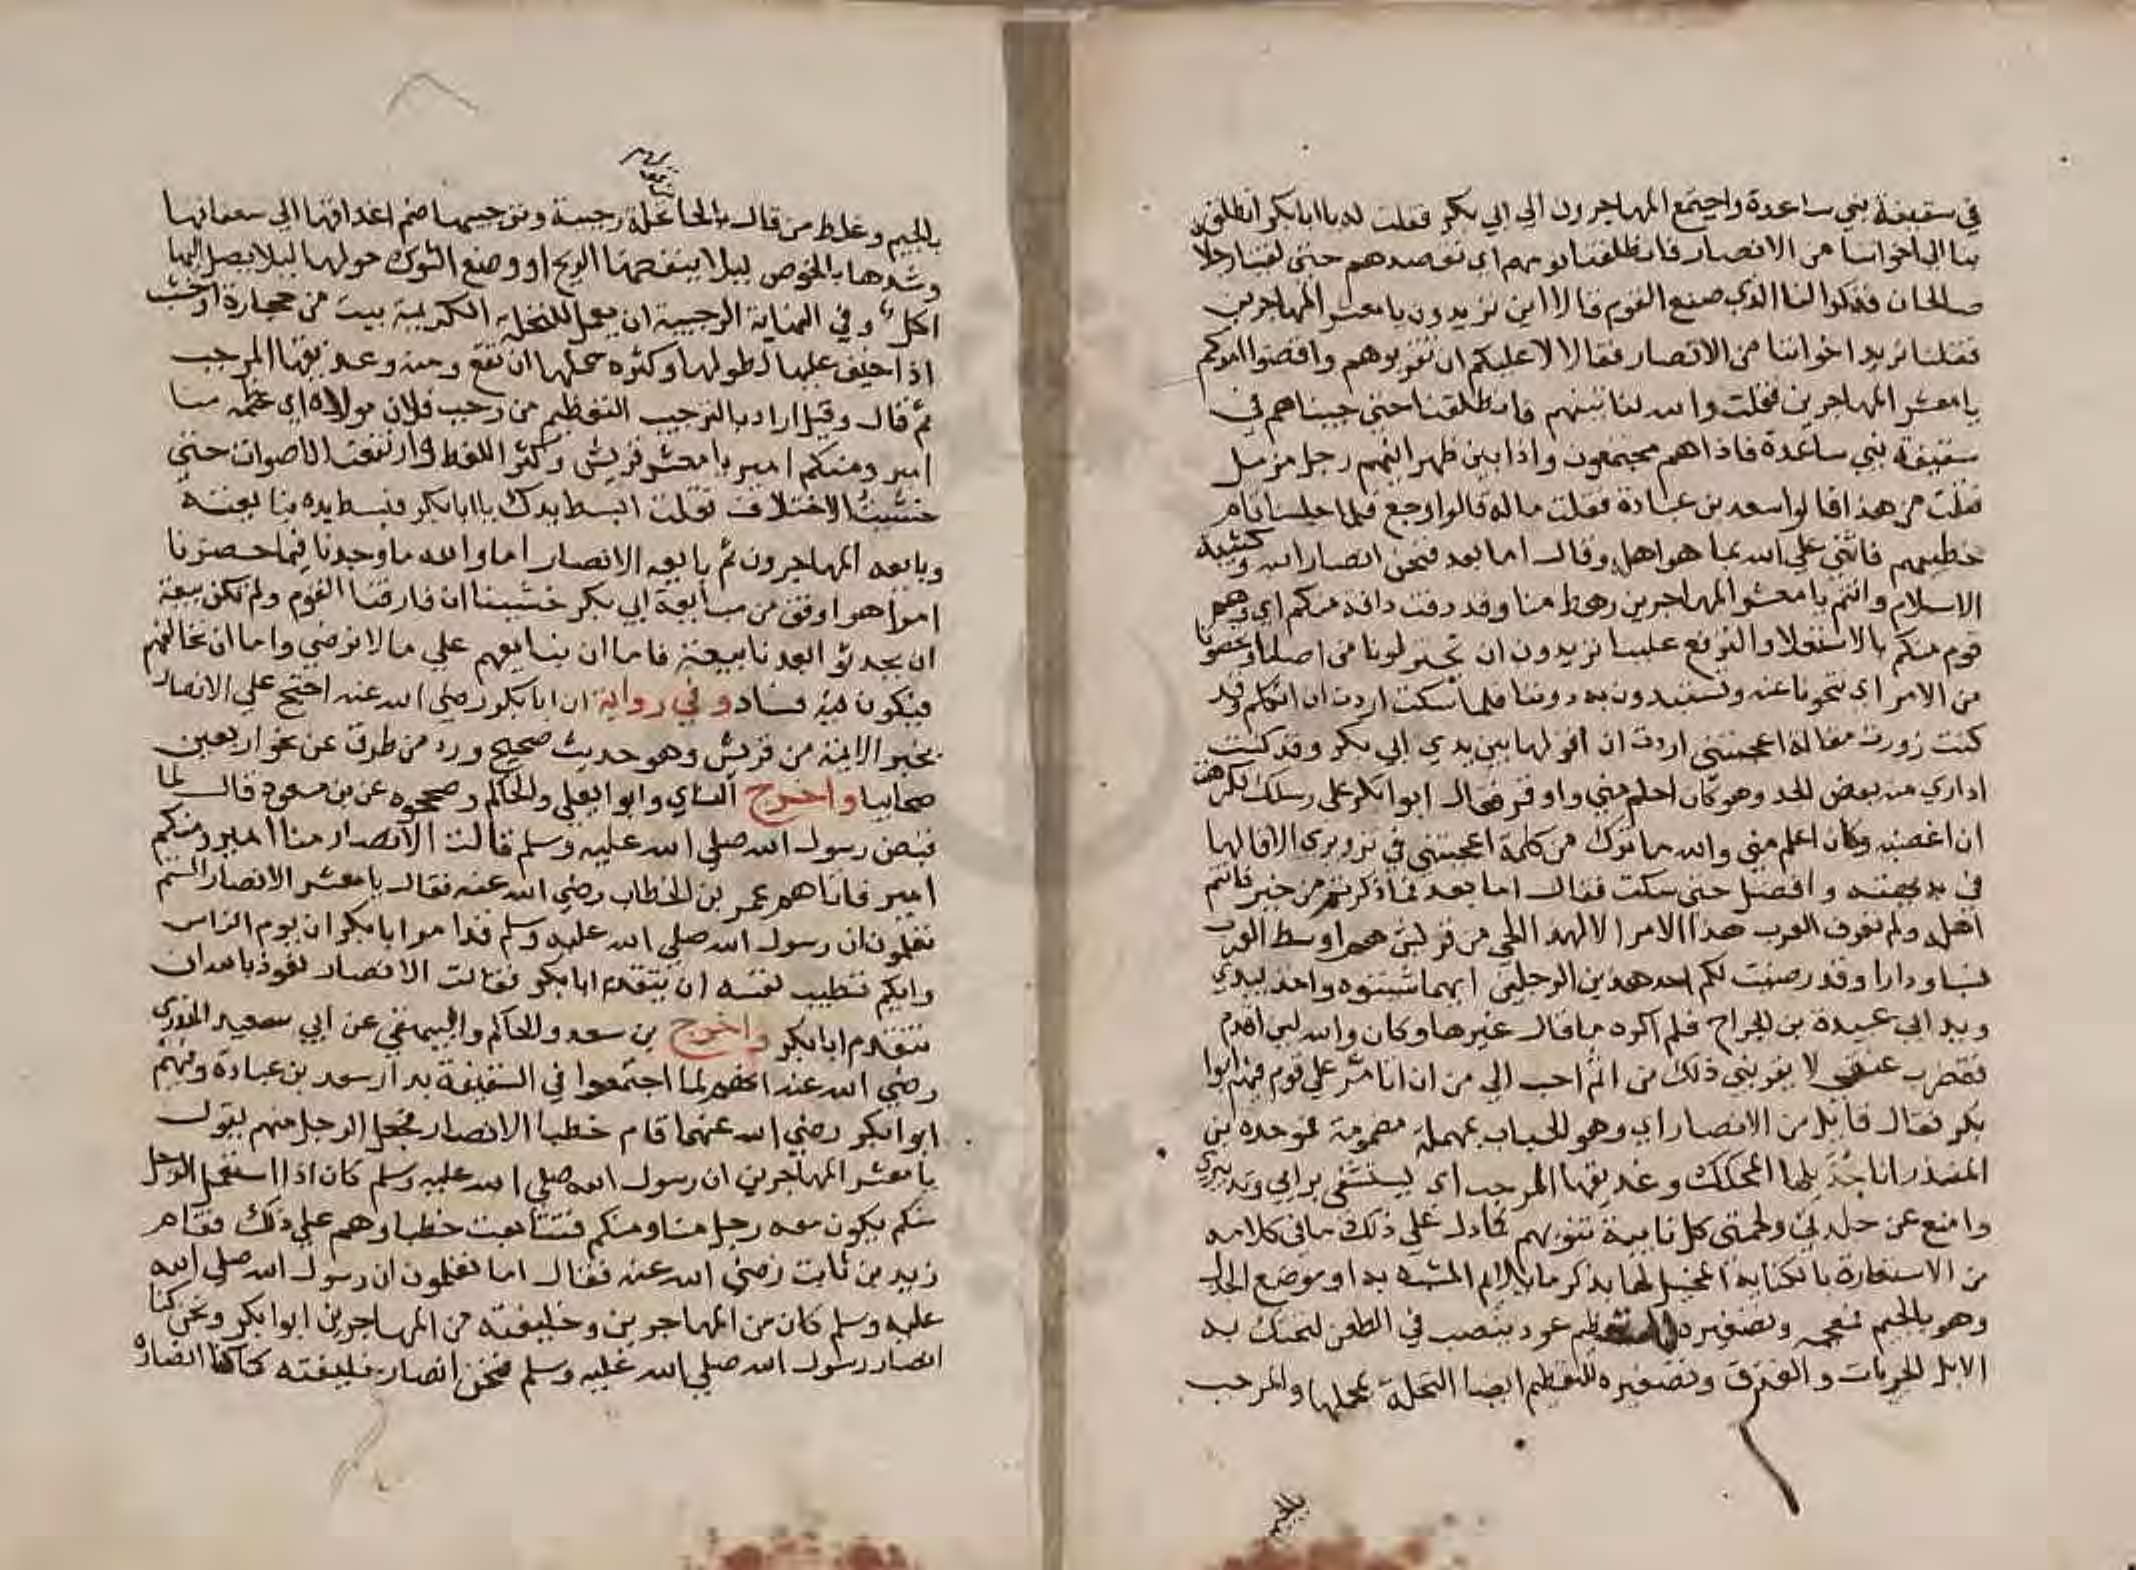 في سقيفة بني ساعدة واجتمع المهاجرون الي ابي بكر فقلت له يا ابا بكر انطلق
بنا الي اخواننا من الانصار فانطلقنا نومهم اي نقصدهم حتي لقينا رجلان
صالحان فذكرا لنا الذي صنع القوم قالا اين تريدون يا معشر المهاجرين
فقلنا نريد اخواننا من الانصار فقالا لا عليكم ان تقربوهم واقضوا امركم
يا معشر المهاجرين فقلت والله لناتينهم فانطلقنا حتي جيناهم في
سقيفة بني ساعدة فاذاهم مجتمعون واذا بين ظهرانيهم رجل مزمل
فقلت من هذا قالوا سعد بن عبادة فقلت ماله قالوا وجع فلما جلسنا قام
خطيبهم فاثني علي الله بما هو اهله وقال اما بعد فنحن انصار الله وكتيبة
الاسلام وانتم يا معشر المهاجرين رهط منا وقد دفت دافة منكم اي دهم
قوم منكم بالاستعلا والترفع علينا تريدون ان تختزلونا من اصلنا وتحضونا
من الامر اي تنحونا عنه وتستبدون به دوننا فلما سكت اردت ان اتكلم وقد
كنت زورت مقالة اعجبتني اردت ان اقولها بين يدي ابي بكر وقد كنت
اداري منه بعض الحد وهو كان احلم مني واوقر فقال ابو ابكر علي رسلك فكرهت
ان اغضبه وكان اعلم مني والله ما ترك من كلمة اعجبتني في تزويري الا قالها
في بديهته وافضل حتي سكت فقال اما بعد فما ذكرتم من خير فانتم
اهله ولم تعرف العرب هذا الامر الا لهذا الحي من قريش هم اوسط العرب
نسبا ودارا وقد رضيت لكم احد هذين الرجلين ايهما شيتم واخذ بيدي
وبيد ابي عبيدة بن الجراح فلم اكره مما قال غيرها وكان والله لين اقدم
فتضرب عنقي لا يقربني ذلك من اثم احب الي من ان اتامر علي قوم فيهم ابوا
بكر فقال قايل من الانصار اي وهو الحباب بمهملة مضمومة فموحدة بن
المنذر انا جذيلها المحكك وعذيقها المرجب اي يستشفي برايي وتدبيري
وامنع عن جلدتي ولحمتي كل نايبة تنوبهم كما دل علي ذلك ما في كلامه
من الاستعارة بالكناية المخيل لها بذكر ما يلايم المشبه به اذ موضع
وهو بالجيم فمعجمه وتصغيره للتعظيم عود ينصب في العطن لتحتك به
الابل الجربات و العذق وتصغيره للتعظيم ايضا النخلة بحملها والمرجب
بالجيم
بالجيم وغلط من قال بالحا نخلة رجبية وترجيبها ضم اعذاقها الي سعفاتها
وشدها بالخوص ليلا ينفضها الريح او وضع الشوك حولها ليلا يصل اليها
اكل وفي النهاية الرجبية ان يعمل للنخلة الكريمة بيت من حجارة او خشب
اذا خيف عليها لطولها وكثرة حملها ان تقع ومنه وعذيقها المرجب
ثم قال وقيل اراد بالترجيب التعظيم من رجب فلان مولاه اي عظمه منا
امير ومنكم امير يا معشر قريش وكثر اللغط وارتفعت الاصوات حتي
خشيت الاختلاف فقلت ابسط يدك يا ابا بكر فبسط يده فبايعته
وبايعه المهاجرون ثم بايعه الانصار اما والله ما وجدنا فيما حضرنا
امرا هو اوفق من مبايعة ابي بكر خشينا ان فارقنا القوم ولم تكن بيعة
ان يحدثوا بعدنا بيعة فاما ان نبايعهم علي ما لا نرضي واما ان نخالفهم
فيكون فيه فساد وفي رواية ان ابا بكر رضي الله عنه احتج علي الانصار
بخبر الايمة من قريش وهو حديث صحيح ورد من طرق عن نحو اربعين
صحابيا واخرج النساي وابوا يعلي والحاكم وصححوه عن بن مسعود قال لما
قبض رسول الله صلي الله عليه وسلم قالت الانصار منا امير ومنكم
امير فاتاهم عمر بن الخطاب رضي الله عنه فقال يا معشر الانصار الستم
تعلمون ان رسول الله صلي الله عليه وسلم قد امر ابا بكر ان يوم الناس
وايكم تطيب نفسه ان يتقدم ابا بكر فقالت الانصار نعوذ بالله ان
نتقدم ابا بكر واخرج بن سعد والحاكم والبيهقي عن ابي سعيد الخدري
رضي الله عنه انهم لما اجتمعوا في السقيفة بدار سعد بن عبادة وفيهم
ابوا بكر رضي الله عنهما قام خطبا الانصار فجعل الرجل منهم يقول
يا معشر المهاجرين ان رسول الله صلي الله عليه وسلم كان اذا استعمل الرجل
منكم يكون معه رجل منا ومنكم فتتابعت خطباوهم علي ذلك فقام
زيد بن ثابت رضي الله عنه فقال اما تعلمون ان رسول الله صلي الله
عليه وسلم كان من المهاجرين وخليفته من المهاجرين ابوا بكر ونحن كنا
انصار رسول الله صلي الله عليه وسلم فنحن انصار خليفته كما كنا انصاره